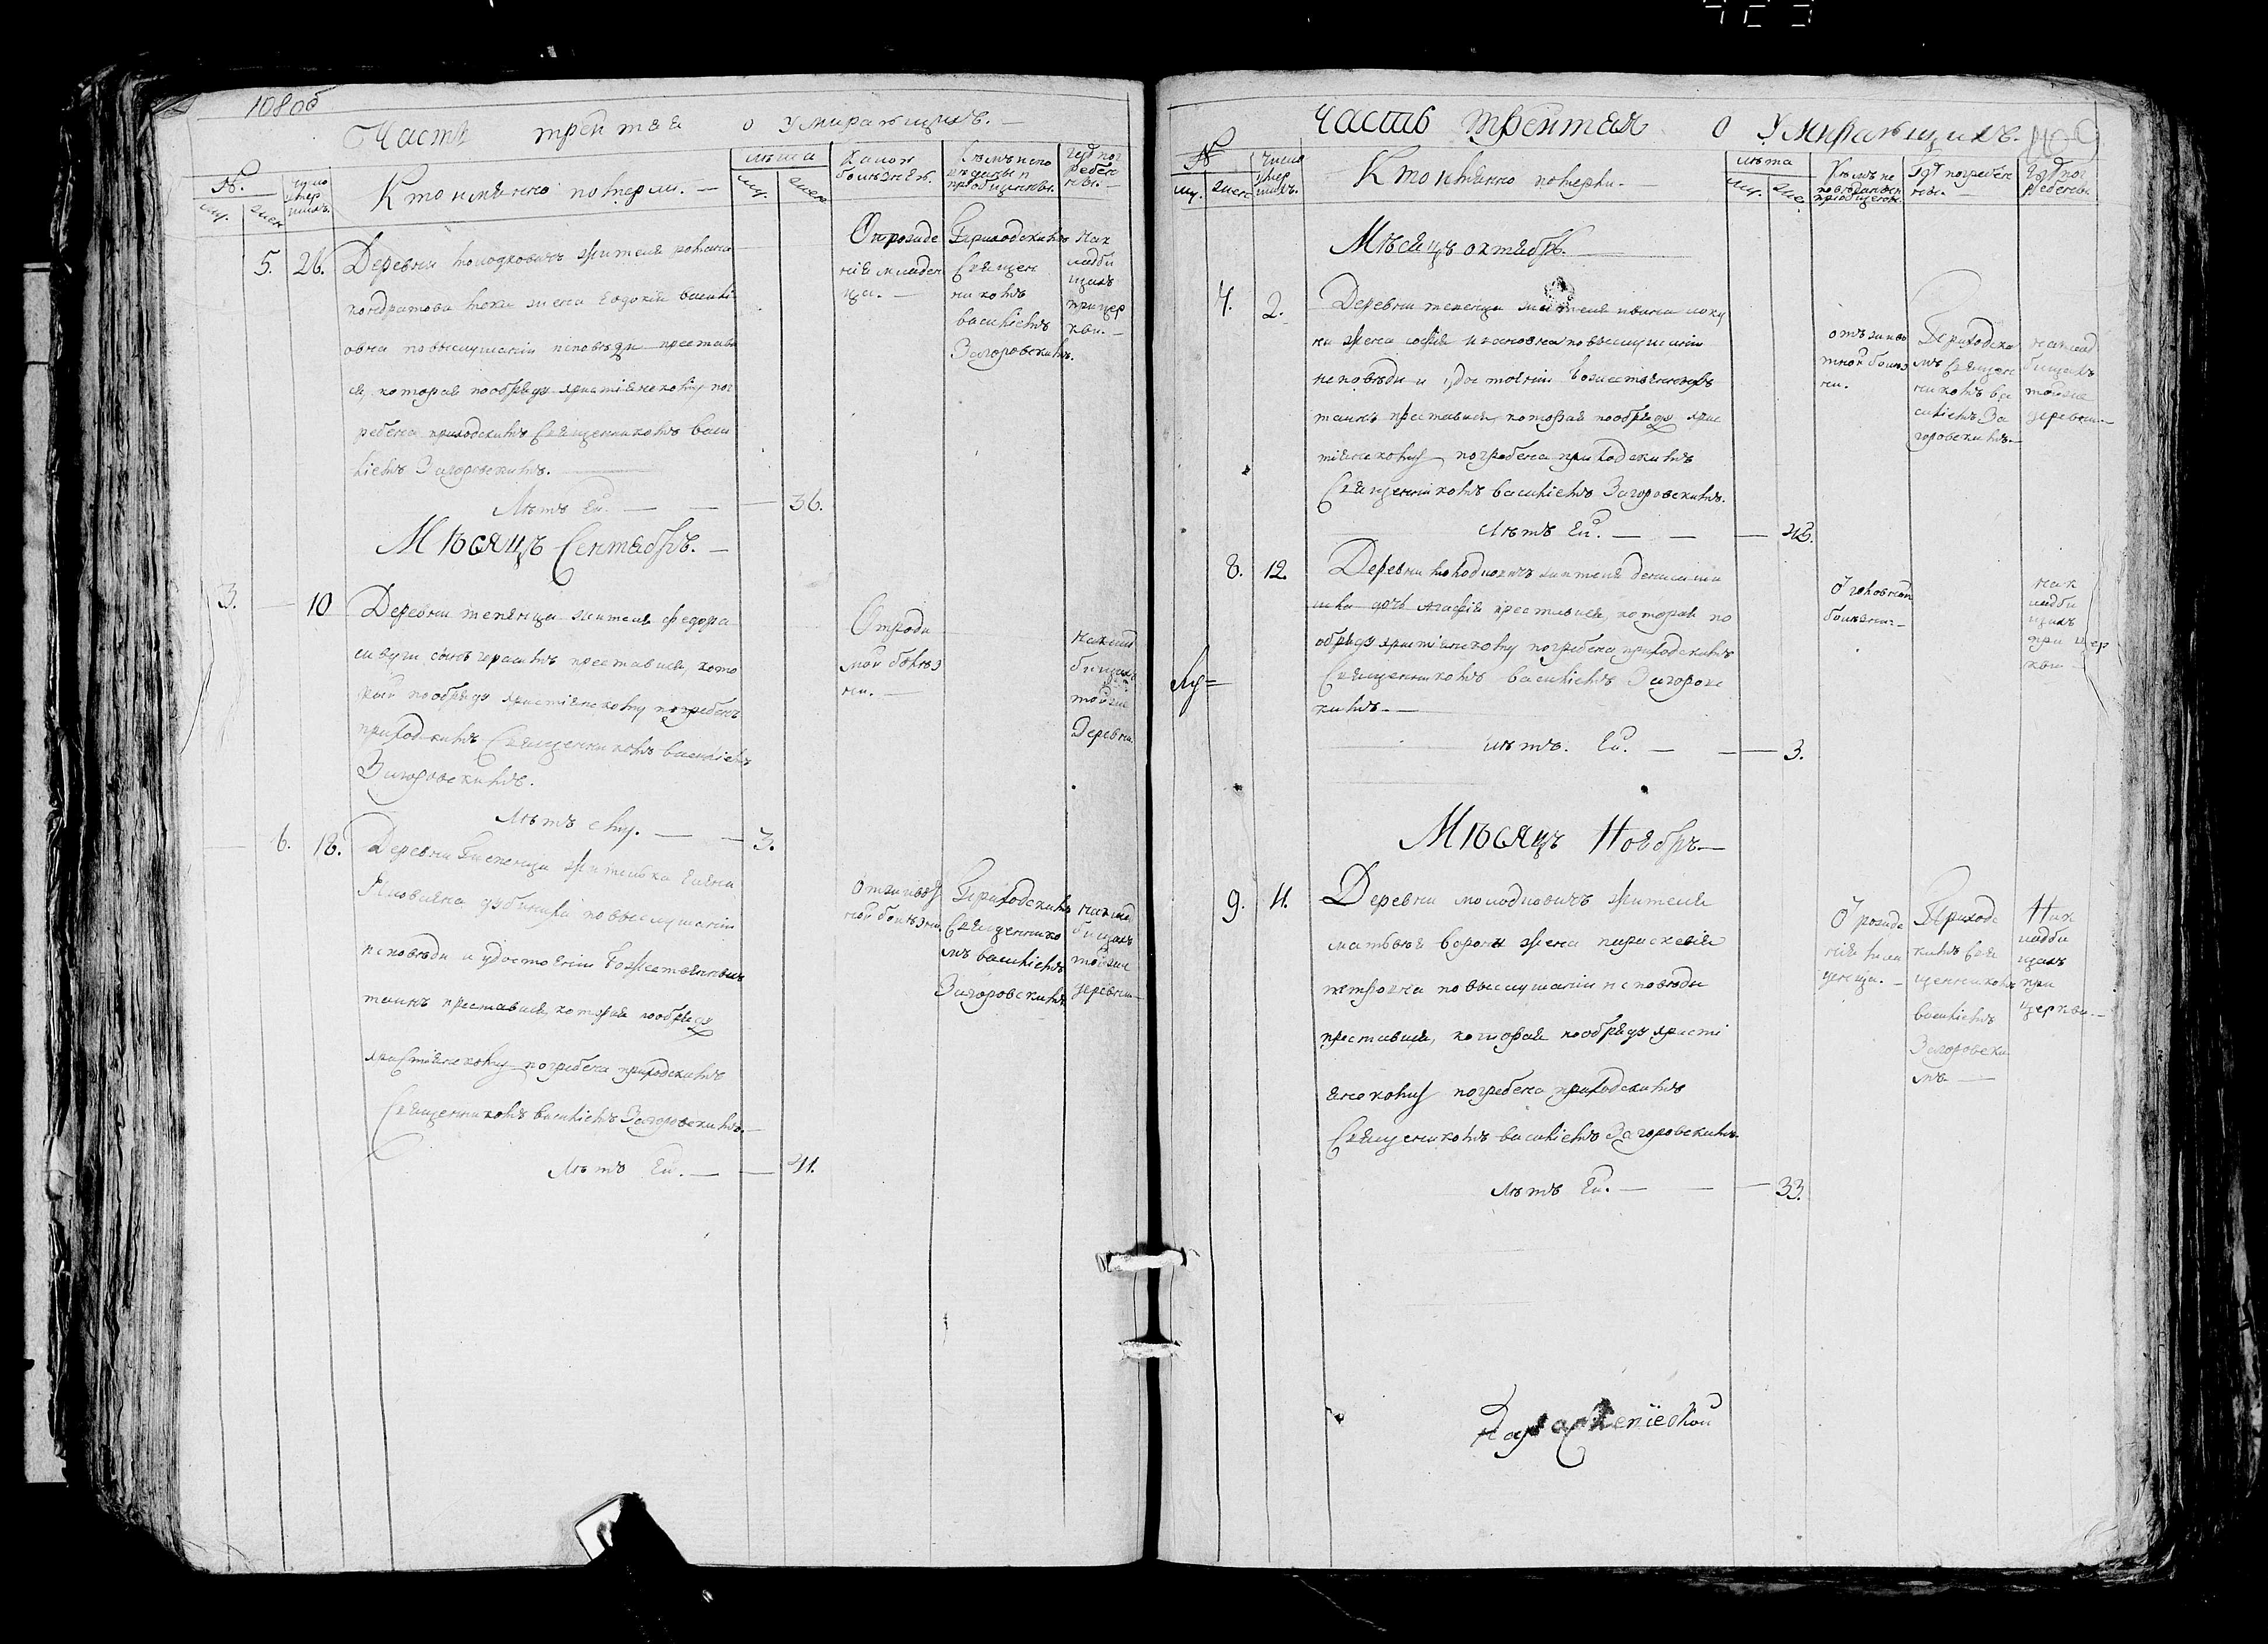 108об
Часть третяя о умирающихъ.
№.
муж. женс.
число умершихъ.
Кто имянно померли.
лѣта
муж. женс.
Какою болѣзнію.
Кѣмъ исповѣданы и приобщены.
Гдѣ погребены.
5. 26.
Деревни Молодковичъ жителя романа
кондратова жена Евдокия василиі
овна по выслушании исповѣди престави
ся, которая по обряду христіянскому пог
ребена приходскимъ Священникомъ васи
лиемъ Загоровскимъ.
Лѣтъ Ей. 36.
От рожде
нія младен
ца.
Приходскимъ
Священ
никомъ
василіемъ
Загоровскимъ.
На к
ладби
щахъ
при цер
кви.
Мѣсяцъ Сентябрь.
3. 10
Деревни жителя федора
сынъ герасимъ преставися, кото
рый по обряду христіянскому погребенъ
приходскимъ Священникомъ василіемъ
Загоровскимъ.
Лѣтъ ему. 3.
От роди
мой болѣз
ни.
На клад
бищахъ
той же
Деревни.
6. 18.
Деревни жителька Елена
по выслушании
исповѣди и удостоении Божественныхъ
таинъ преставися, которая по обряду
христіянскому погребена приходскимъ
Священникомъ василіемъ Загоровскимъ.
Лѣтъ Ей. 41.
ной болѣзни.
Приходскимъ
Священнико
мъ василіемъ
Загоровскимъ
На клад
бищахъ
той же
деревни
Часть третяя о умирающихъ. 109
№
муж. женс.
Число умершихъ.
Кто имянно померли.
лѣта
муж. женс.
Кѣмъ исповѣданы и приобщены.
Гдѣ погребены.
Гдѣ погребены
Мѣсяцъ октябрь.
7. 2.
Деревни жителя ивана
жена софія ивановна по выслушании
исповѣди и удостоении Божественныхъ
таинъ преставися, которая по обряду хрис
тіянскому погребена приходскимъ
Священникомъ василіемъ Загоровскимъ.
Лѣтъ Ей.
ной болѣз
ни.
Приходски
мъ Священ
никомъ ва
силіемъ За
горовскимъ
на клад
бищахъ
той же
деревни
8. 12.
Деревни жителя дениса
дочь Агафія преставися, которая по
обряду христіянскому погребена приходскимъ
Священникомъ василіемъ Загоровс
кимъ.
лѣтъ. Ей. 3.
О головной
болѣзни.
на к
ладби
щахъ
при цер
кви.
Мѣсяцъ Ноябрь
9. 11.
Деревни молодковичъ жителя
матвея ворона жена параскевія
петровна по выслушании исповѣди
преставися, которая по обряду христі
янскому погребена приходскимъ
Священникомъ василіемъ Загоровскимъ.
Лѣтъ Ей. 33.
О рожде
нія мла
денца.
Приходс
кимъ Свя
щенникомъ
василіемъ
Загоровски
мъ
На к
ладби
щахъ
при
церкви.